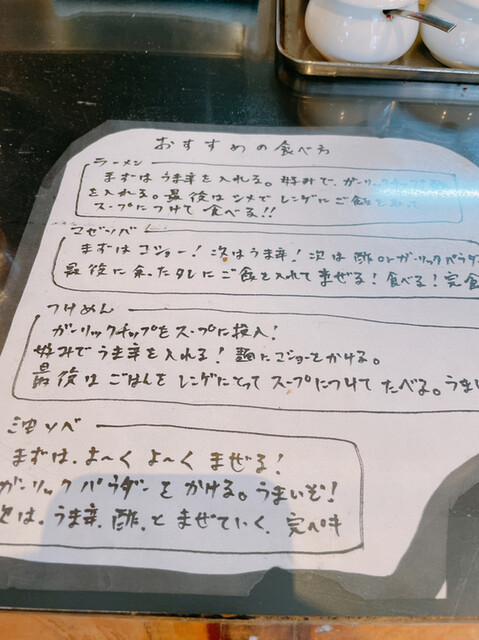 おすすめの食べ方
ラーメン
まずはうま辛を入れる。好みで、ガーリックチップ
を入れる。最後はシメでレンゲにご飯を
スープにつけて食べる!!
マゼソバ
まずはコショー!次はうま辛!次は酢orガーリックパウダ
最後に余ったタレにご飯を入れてまぜる!食べる!完食
つけめん
ガーリックチップをスープに投入!
好みでうま辛を入れる!麺にコショーをかける。
最後はごはんをレンゲにとってスープにつけてたべる。うまい
油ソバ
まずは、よ〜くよ〜くまぜる!
ガーリックパウダーをかける。うまいぞ!
とは、うま辛、酢、とまぜていく、完ペキ